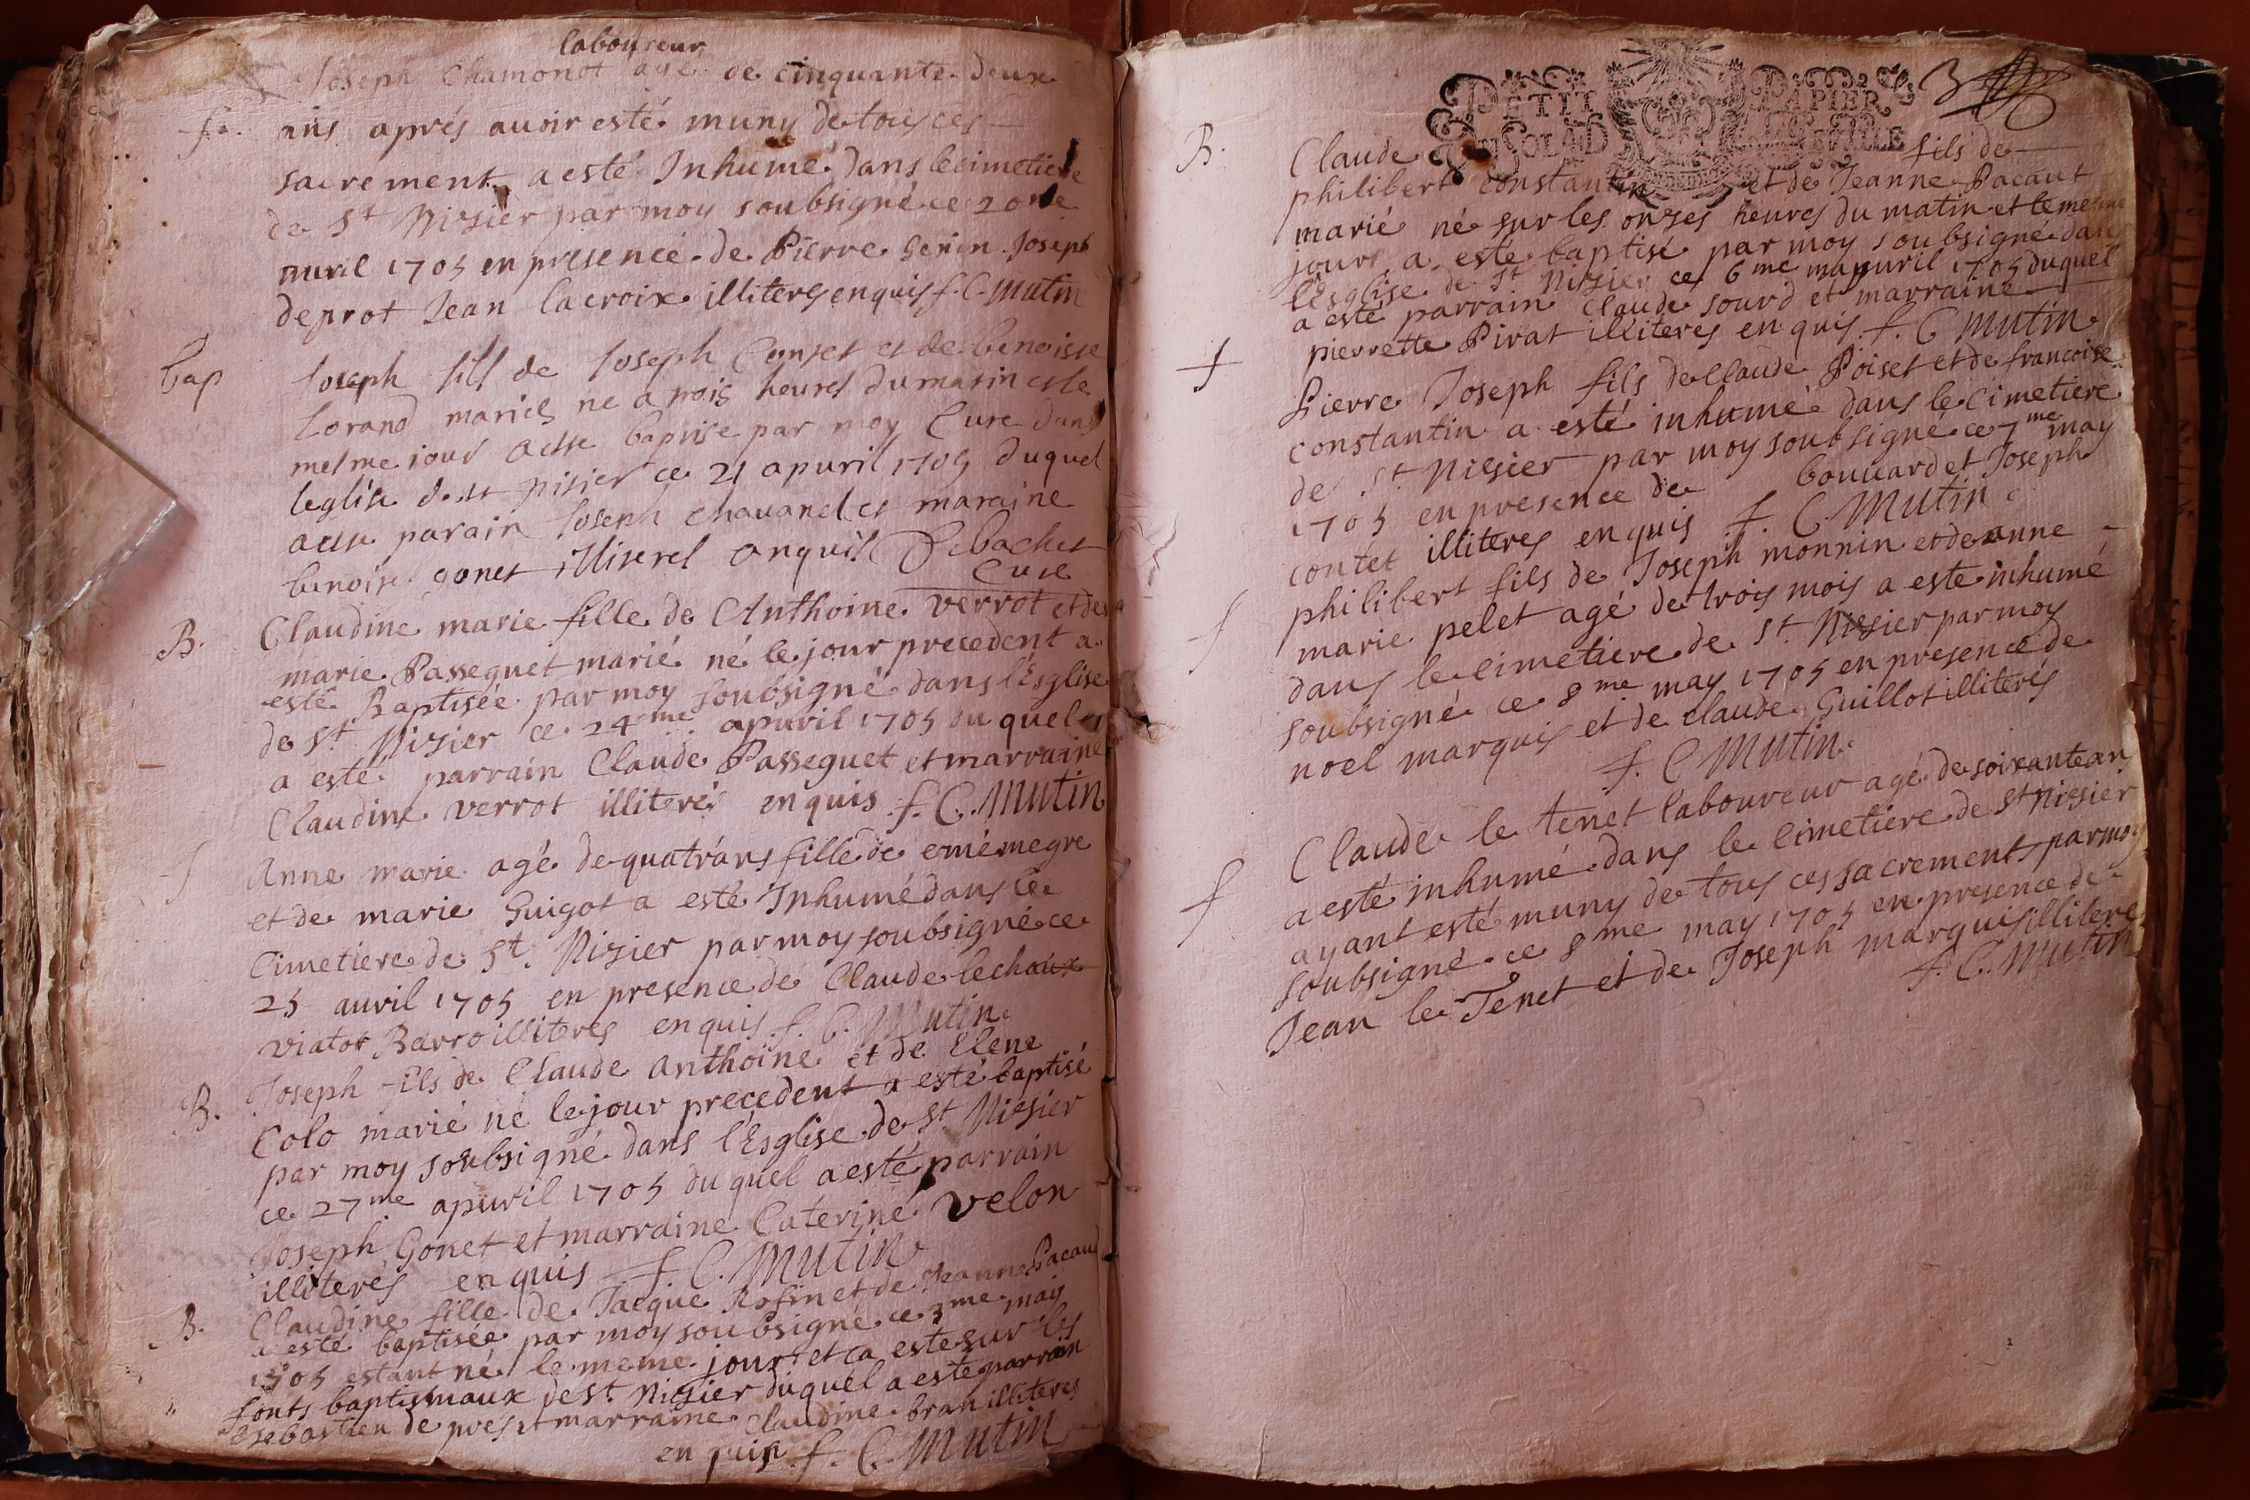 laboureur
Joseph Chamonot agé de cinquante deux
f. ans aprés auoir esté muny de tous ces
sacrement a esté Inhumé dans le cimetiere
de St Nisier par moy soubsigné ce 20me
auril 1705 en presence de Pierre Genin Joseph
deprot Jean lacroix illiteres enquis f. C. Mutin
bap Joseph fill de Joseph Conset et de benoiste
Lorand mariés ne a trois heures du matin et le
mesme iour a este baptise par moy Cure dans
leglise de st nisier ce 21 apuril 1705 duquel
a este parain Joseph chauanel et maraine
benoite gonet illiterel anquis Debachet
Cure
B. Claudine marie fille de Anthoine verrot et de
marie Passeguet marié né le jour precedent a
esté Baptisée par moy soubsigné dans l'Esglise
de St Nisier ce 24me apuril 1705 du quel
a esté parrain Claude Passeguet et marraine
Claudine verrot illiterés enquis f. C. Mutin
f Anne marie agé de quatrans fille de emé megre
et de marie Guigot a esté Inhumé dans le
Cimetiere de St. Nisier par moy soubsigné ce
25 auril 1705 en presence de Claude lechaux
viator Barro illiteres enquis f. C. Mutin
B. Joseph fils de Claude Anthoine et de Elene
Colo marié né le jour precedent a esté baptisé
par moy soubsigné dans l'Esglise de St Nisier
ce 27me apuril 1705 du quel a esté parrain
Joseph Gonet et marraine Caterine velon
illiterés enquis f. C. Mutin
B. Claudine fille de Jacque Rofin et de Jeanne Pacaud
a esté baptisée par moy soubsigné ce 3me may
1705 estant né le meme jour et ca este sur les
fonts baptismaux de St. Nisier duquel a esté parrain
sebastien de pres et marraine Claudine bran illiteres
en quis f. C. Mutin
PETIT PAPIER 3
B. Claude fils de
philibert constantin et de Jeanne Pacaut
marié né sur les onzes heures du matin et le mesme
jours a esté baptisé par moy soubsigné dans
l'Esglise de St Nisier ce 6me 1705 duquel
a esté parrain Claude sourd et marraine
pierrette Pirat illiteres en quis f. C. Mutin
f Pierre Joseph fils de Claude Poiset et de francoise
constantin a esté inhumé dans le Cimetiere
de St Nisier par moy soubsigné ce 7me may
1705 en presence de bouuard et Joseph
contet illiteres enquis f. C. Mutin
f philibert fils de Joseph monnin et de anne
marie pelet agé de trois mois a este inhumé
dans le cimetiere de St. Nisier par moy
soubsigné ce 8me may 1705 en presence de
noel marquis et de claude Guillot illiterés
f. C. Mutin
f Claude le tenet laboureur agé de soixante an
a esté inhumé dans le cimetiere de St Nisier
ayant esté muny de tous ces sacrements par moy
soubsigné ce 8me may 1705 en presence de
Jean le Tenet et de Joseph marquis illitere
f. C. Mutin